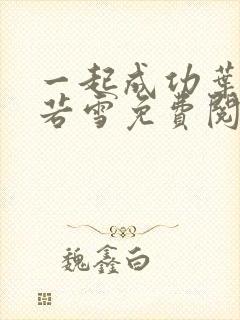 一起成功葉
若雪免費閱
魏鑫白